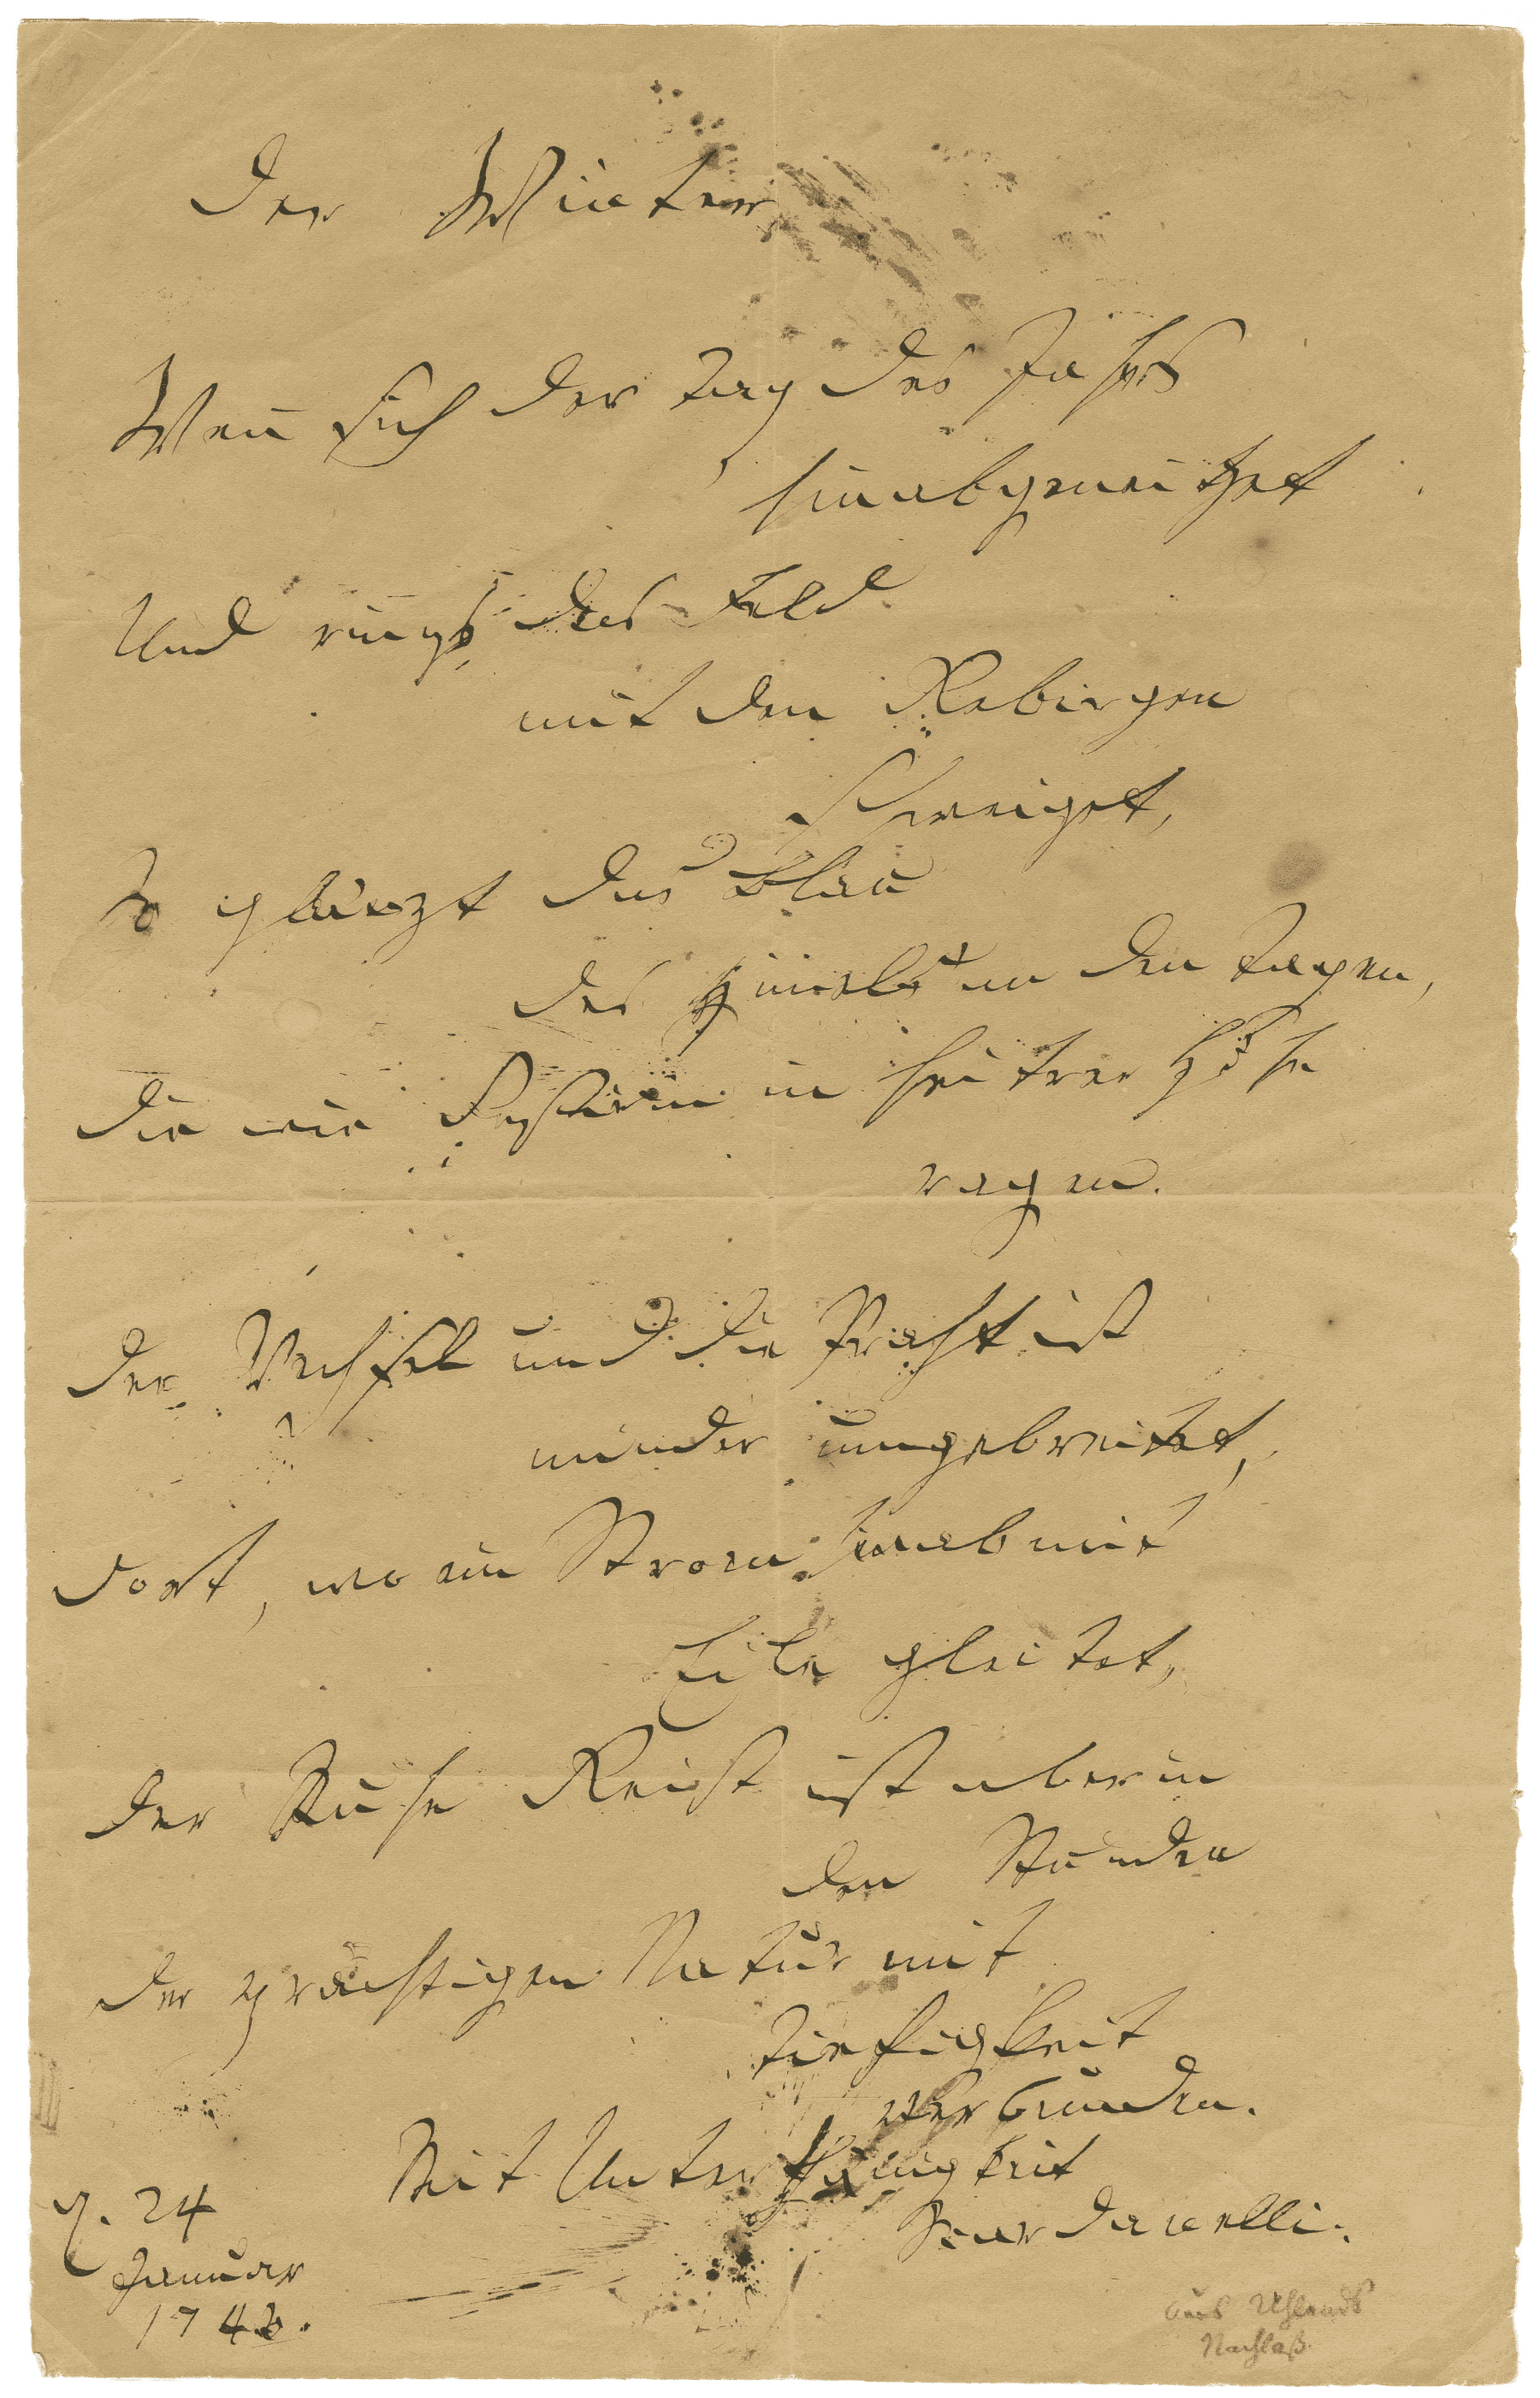 Der Winter
Wen̄ sich der Tag des Jahrs
hinabgeneiget
Und rings das Feld
mit den Gebirgen
schweiget,
So glänzt das Blau
des Him̄els an den Tagen,
Die wie Gestirn in heitrer Höhe
ragen.
Der Wechsel und die Pracht ist
minder umgebreitet,
Dort, wo ein Strom hinab mit
Eile gleitet,
Der Ruhe Geist ist aber in
den Stunden
Der prächtigen Natur mit
Tiefigkeit
verbunden.
Mit Unterthänigkeit
Scardanelli.
d. 24
Januar
1743.
aus Uhlands
Nachlaß